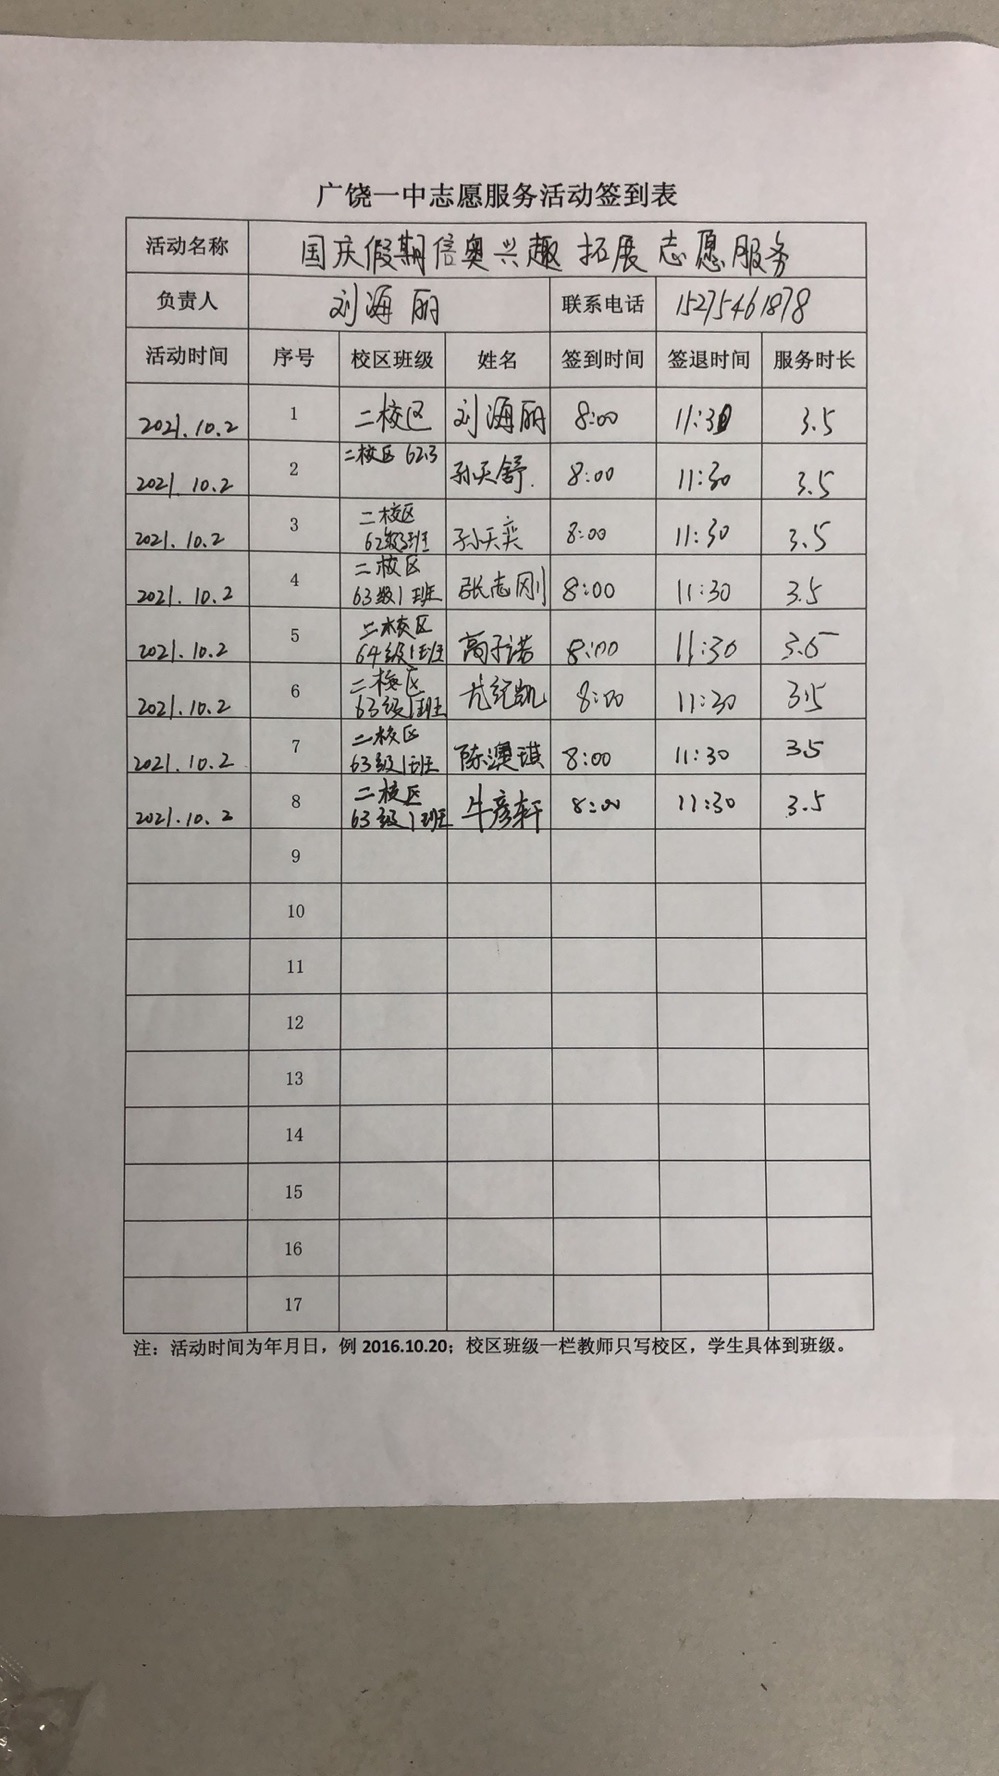 广饶一中志愿服务活动签到表
活动名称 国庆假期信奥兴趣拓展志愿服务
负责人 刘海丽 联系电话 15275461878
活动时间 序号 校区班级 姓名 签到时间 签退时间 服务时长
2021.10.2 1 二校区 刘海丽 8:00 11:30 3.5
2021.10.2 2 二校区 62.3 孙天舒. 8:00 11:30 3.5
2021.10.2 3 二校区 62级3班 孙天奕 8:00 11:30 3.5
2021.10.2 4 二校区 63级1班 张志刚 8:00 11:30 3.5
2021.10.2 5 二校区 64级1班 高子诺 8:00 11:30 3.5
2021.10.2 6 二校区 63级1班 尤纪凯 8:00 11:30 3.5
2021.10.2 7 二校区 63级1班 陈澳琪 8:00 11:30 3.5
2021.10.2 8 二校区 63级1班 牛彦轩 8:00 11:30 3.5
9
10
11
12
13
14
15
16
17
注：活动时间为年月日，例 2016.10.20；校区班级一栏教师只写校区，学生具体到班级。